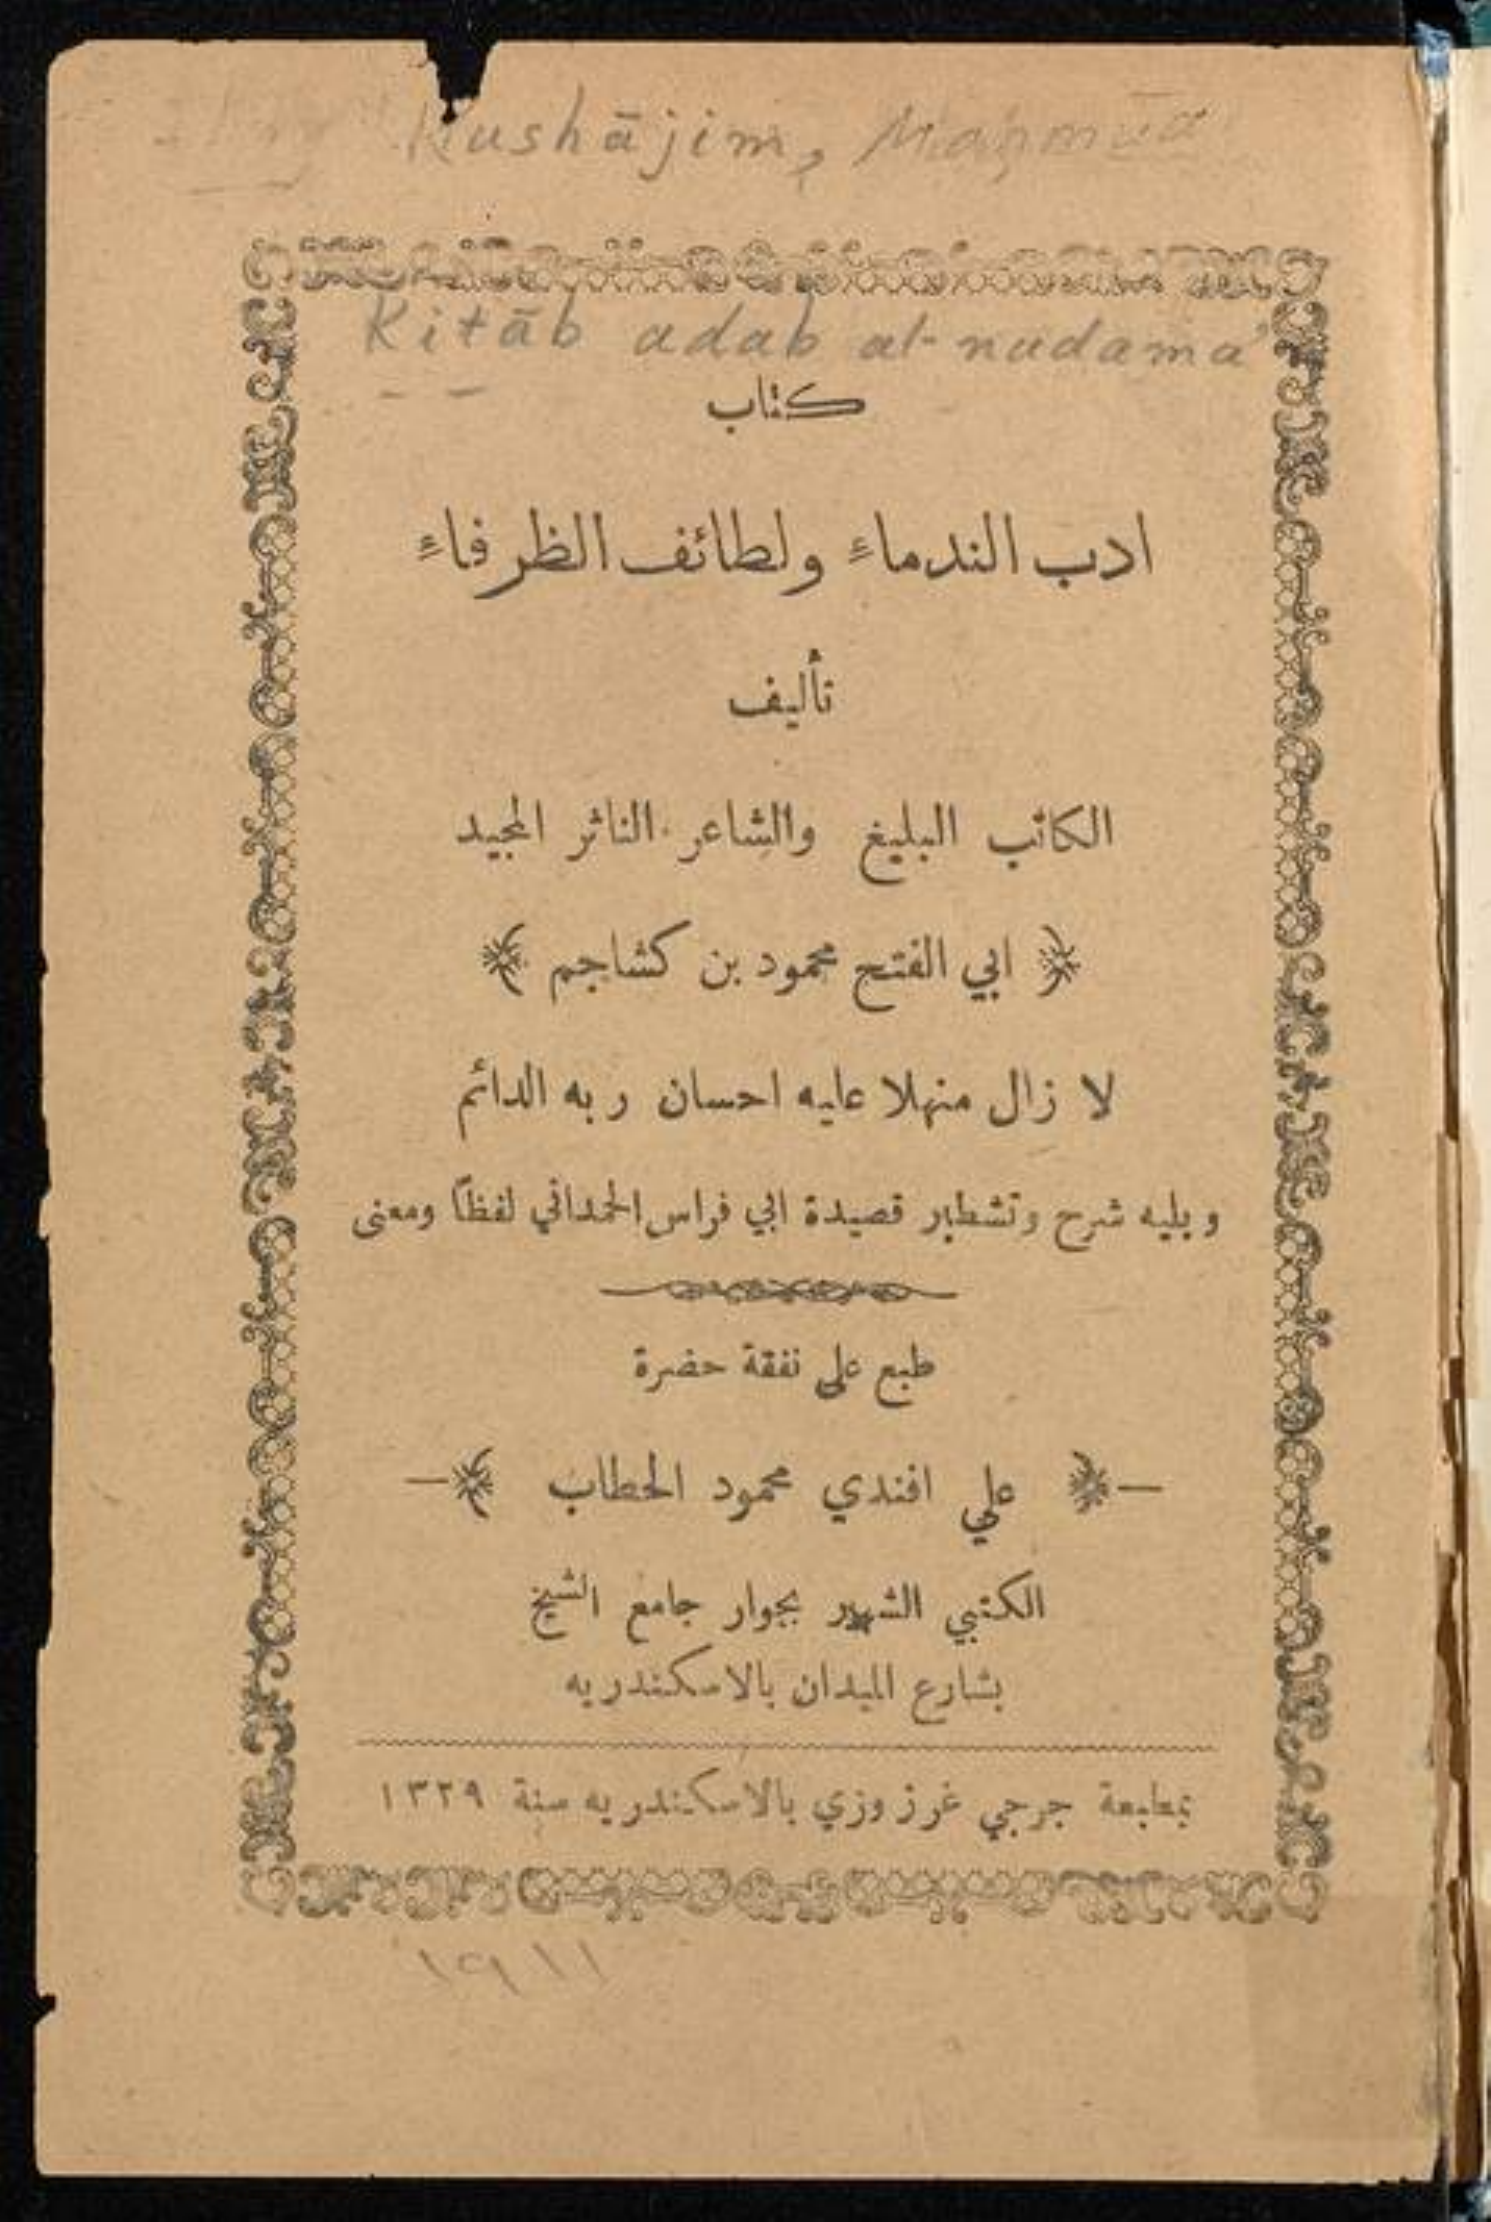 Kushājim, Maḥmūd
Kitāb adab al-nudama'
كتاب
ادب الندماء ولطائف الظرفاء
تأليف
الكاتب البليغ والشاعر الناثر المجيد
ابي الفتح محمود بن كشاجم
لا زال منهلا عليه احسان ربه الدائم
ويليه شرح وتشطير قصيدة ابي فراس الحمداني لفظاً ومعنى
طبع على نفقة حضرة
— علي افندي محمود الحطاب —
الكتبي الشهير بجوار جامع الشيخ
بشارع الميدان بالاسكندريه
بمطبعة جرجي غرزوزي بالاسكندريه سنة ١٣٢٩
١٩١١